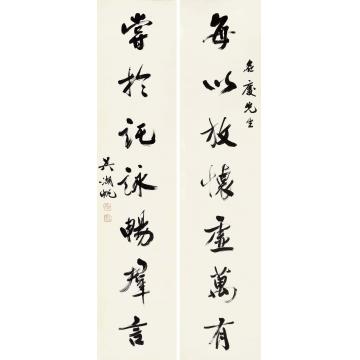 每以放懷虛萬有
名慶先生
嘗於託詠暢羣言
吳湖帆